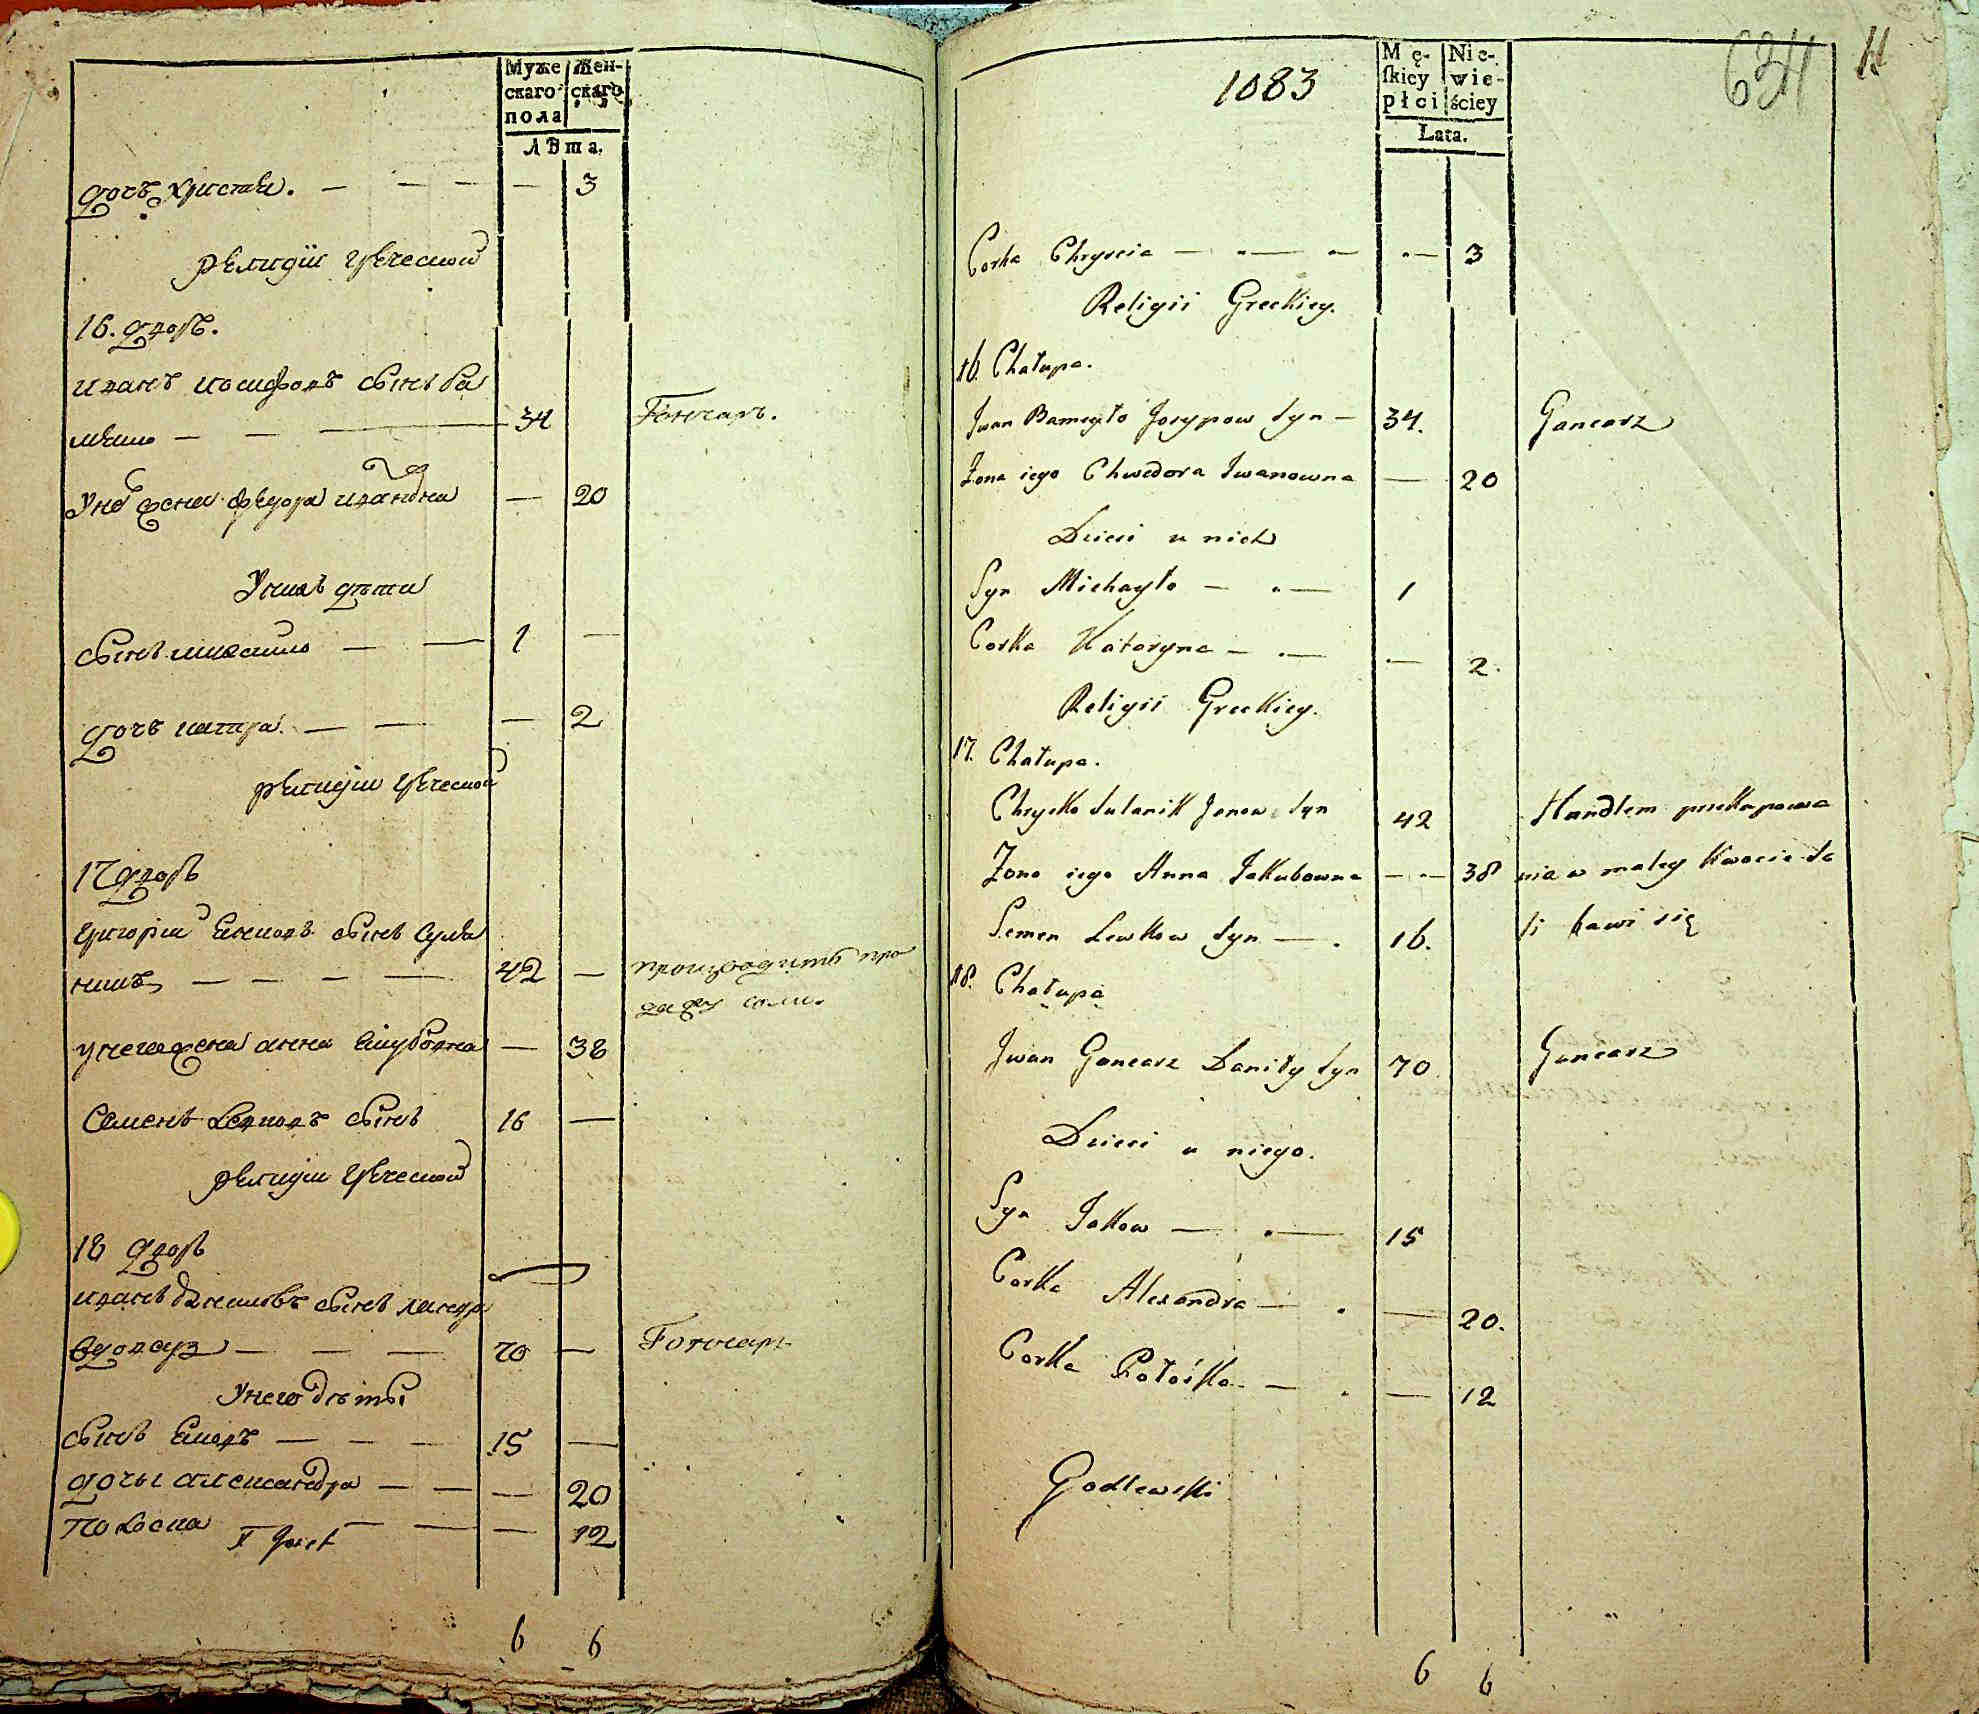 Муже
скаго
пола
Жен-
скаго
Лѣта.
дочь Христя. — — — — 3
религіи греческой
16. дворъ.
Иванъ Иосифовъ сынъ Ба
мило — — — 34 Гончаръ.
У него жена Федора Иванов̾на — 20
У нихъ дѣти
сынъ михаило — — 1 —
дочь катря. — — — 2
религіи греческой
17 дворъ
Григорій сынъ Сула
никъ — — — — 42 — производитъ про
дажу соли.
у него жена анна Якубовна — 38
Семенъ Левковъ сынъ 16 —
религіи греческой
18 дворъ
иванъ даниловъ сынъ
— — — 70 — Гончаръ
У него дѣти
сынъ Яковъ — — — 15 —
дочь александра — — — 20
— — — 12
6 6
1083
634
11
Mę-
ſkiey
płci
Nie-
wie-
ściey
Lata.
Corka Chryscia — — — — 3
Religii Greckiey.
16. Chałupa.
Jwan Bameyło Josypow Syn — 34. Gancarz
Zona iego Chwedora Iwanowna — 20
Dzieci u nich
Syn Michayło — — 1
Corka Kataryna — — — 2.
Religii Greckiey.
17. Chałupa.
Chrycko Sulanik Janow Syn 42 Handlem przekupowa
Zona iego Anna Jakubowna — — 38 nia w małey kwocie So
Semen Lewkow Syn — . 16. li bawi się
18. Chałupa
Jwan Gancarz Daniły Syn 70 Gancarz
Dzieci u niego.
Syn Jakow — — 15
Corka Alexandra — . — 20.
Corka Połoska — . — 12
Godlewski
6 6